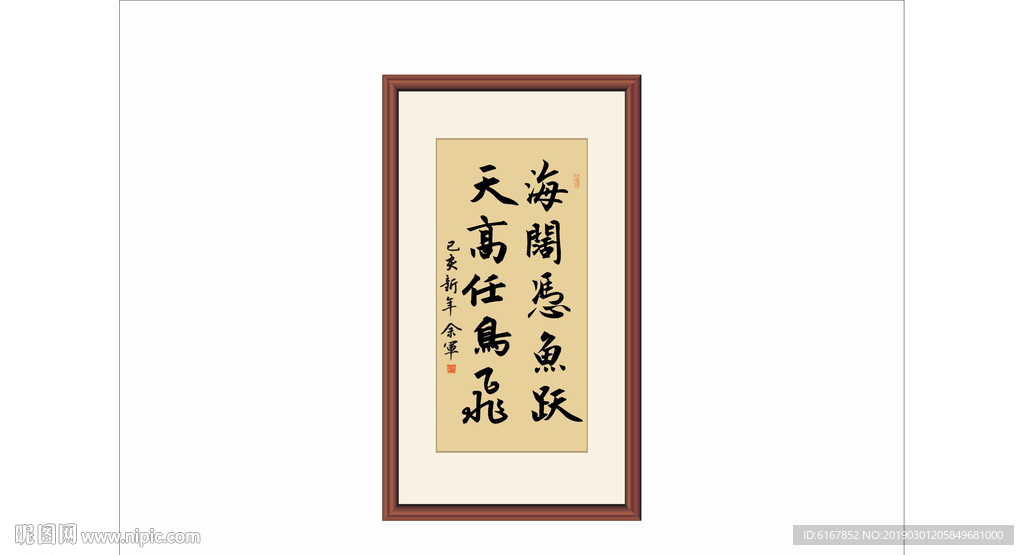 海闊憑魚跃
天高任鳥飛
己亥新年 余軍
昵图网 www.nipic.com
ID:6167852 NO:20190301205849681000